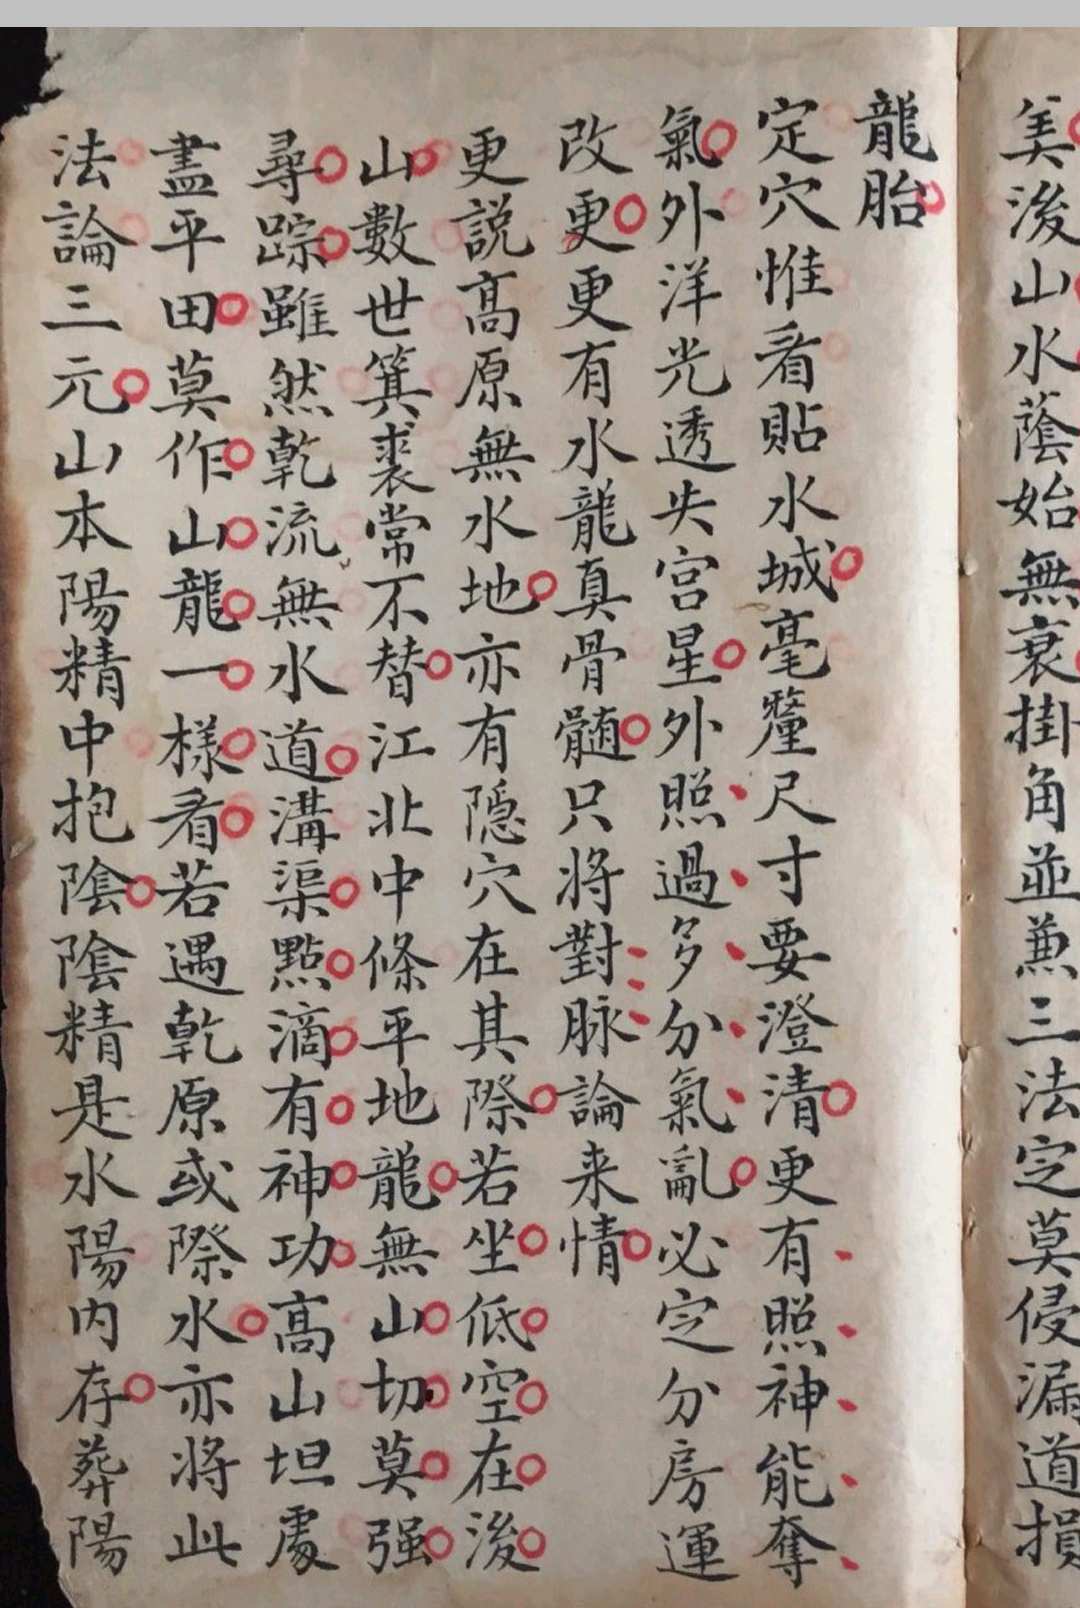 美後山水蔭始無衰掛角並兼三法定莫侵漏道損
龍胎
定穴惟看貼水城毫釐尺寸要澄清更有照神能奪
氣外洋光透失宮星外照過多分氣亂必定分房運
改更更有水龍真骨髓只將對脉論来情
更説髙原無水地亦有隠穴在其際若坐低空在後
山數世箕裘常不替江北中條平地龍無山切莫强
尋踪雖然乾流無水道溝渠點滴有神功髙山坦處
盡平田莫作山龍一樣看若遇乾原或際水亦將此
法論三元山本陽精中抱陰陰精是水陽内存葬陽